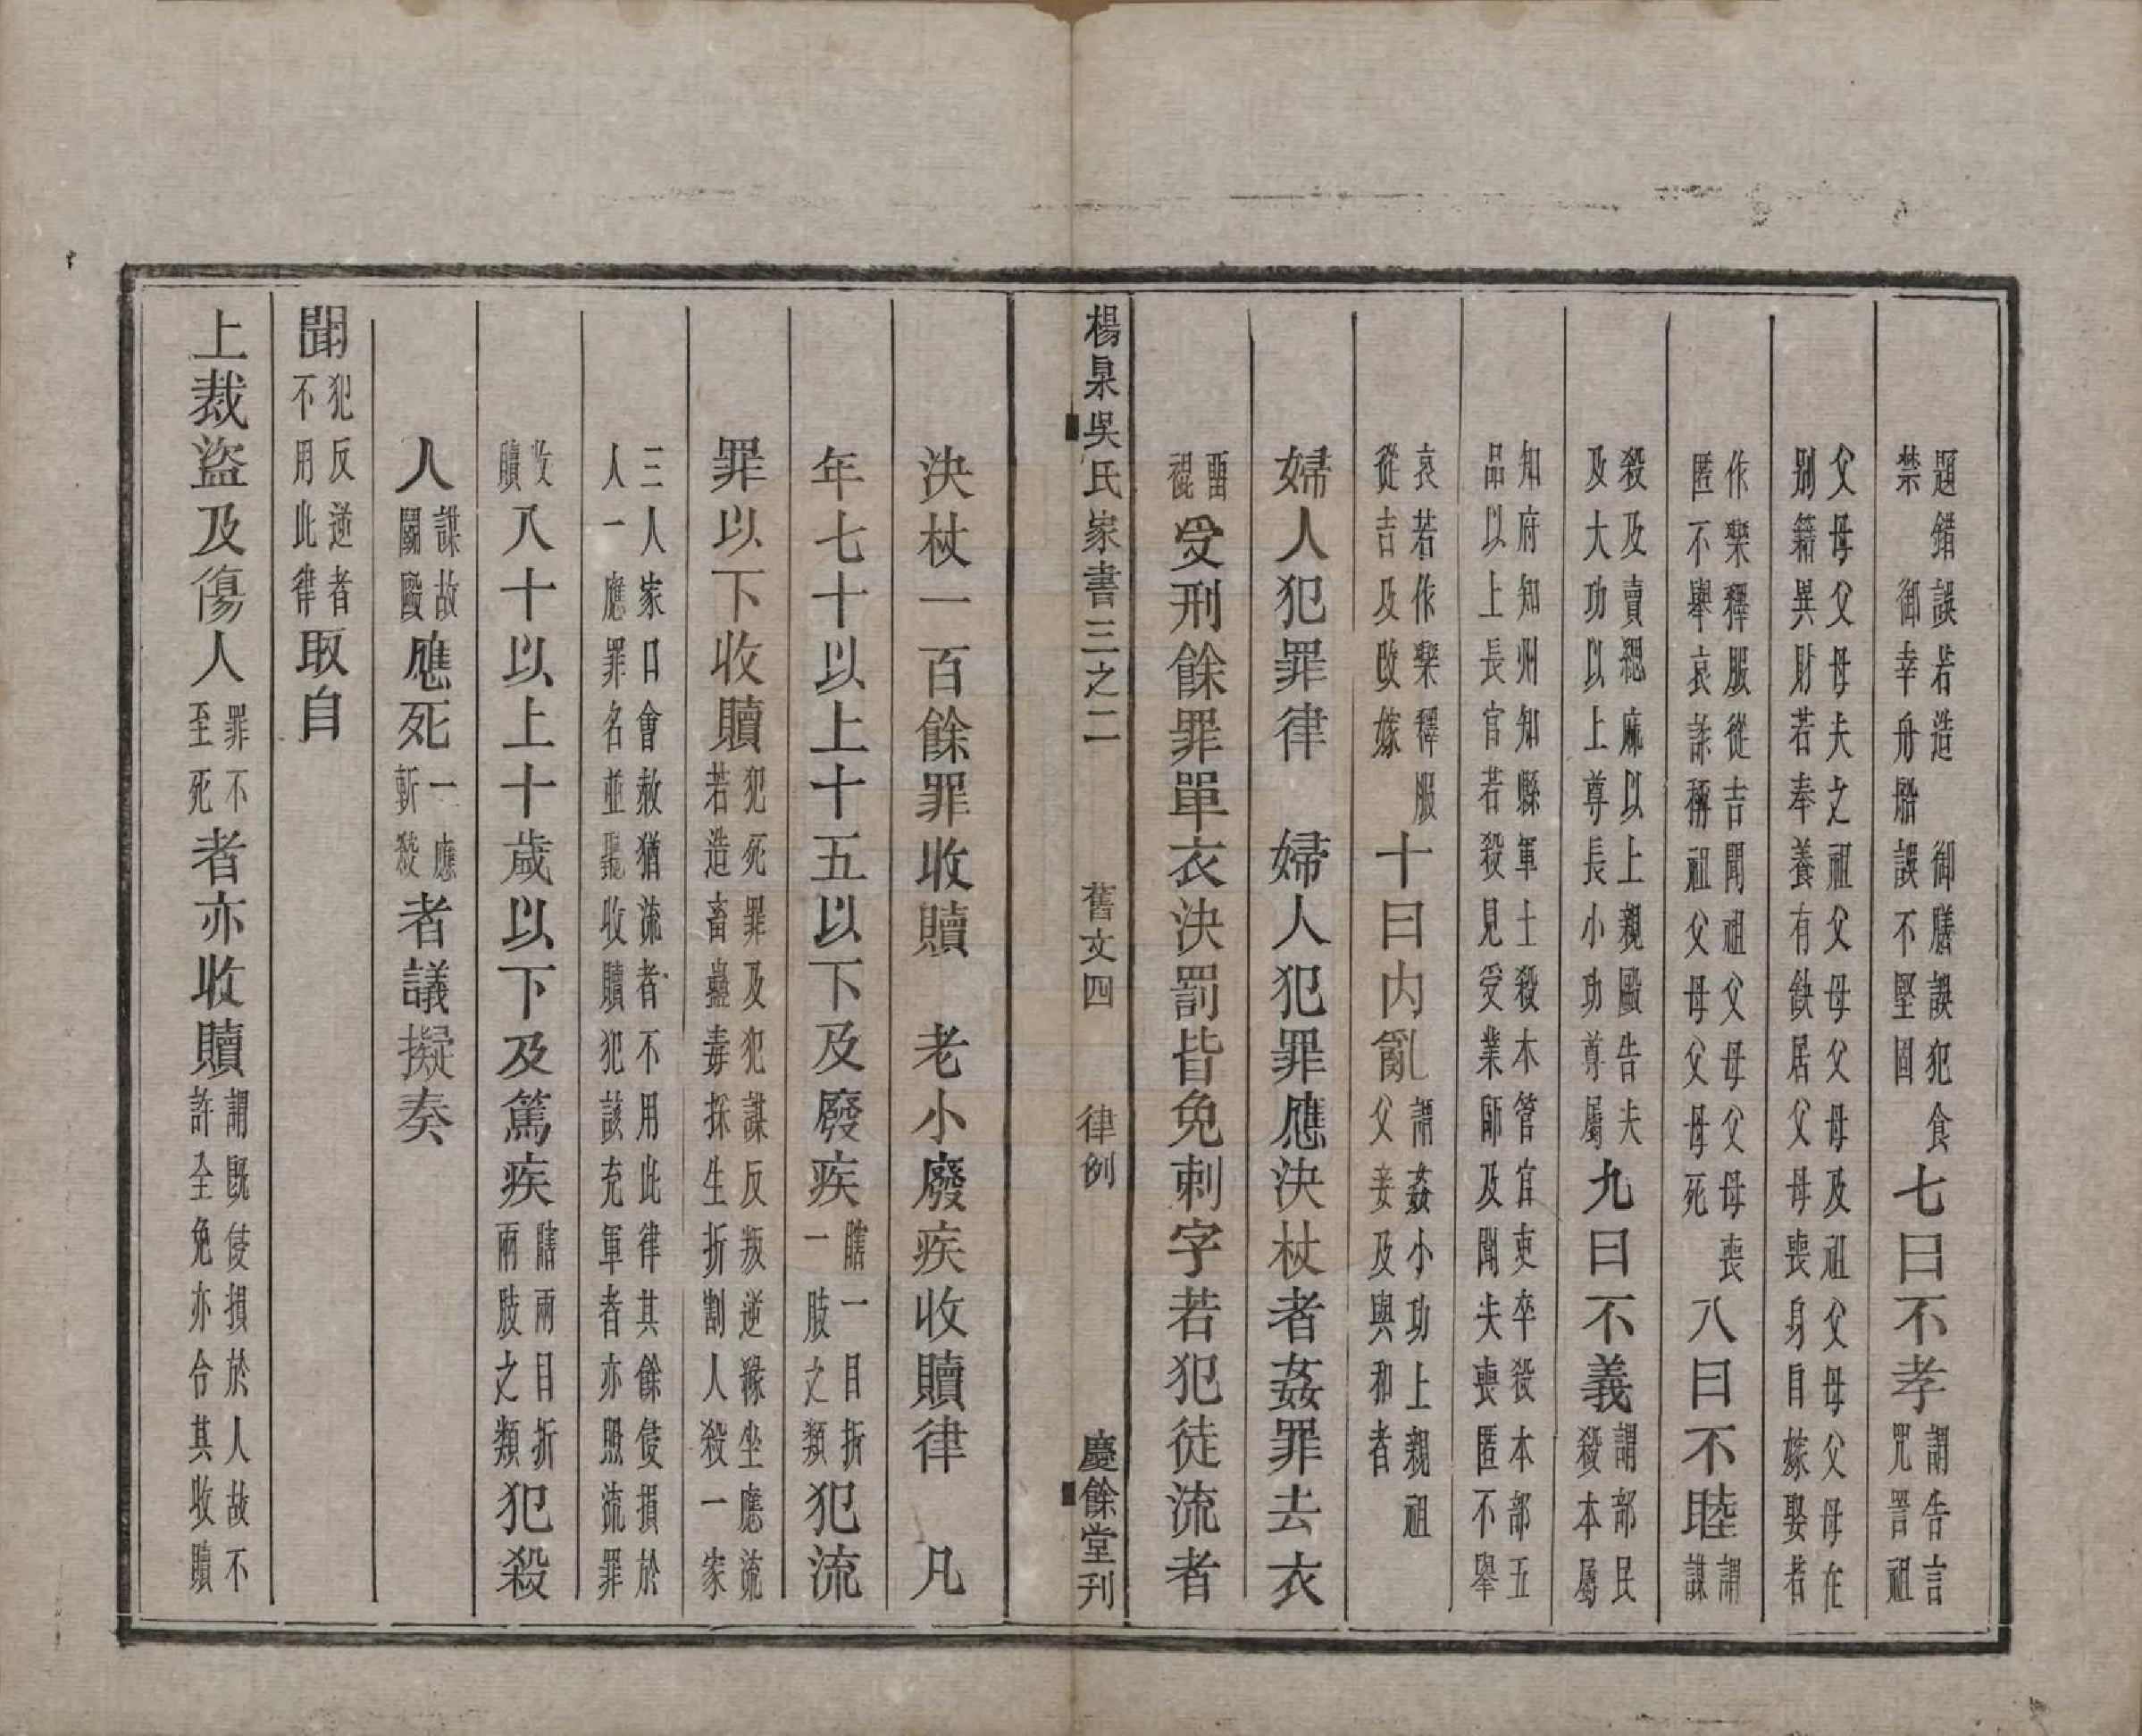 題錯誤若造　御膳誤犯食
禁　御幸舟船誤不堅固　七曰不孝謂告言
咒詈祖
父母父母夫之祖父母父母及祖父母父母在
别籍異財若奉養有缺居父母喪身自嫁娶若
作樂釋服從吉聞祖父母父母喪
匿不舉哀詐稱祖父母父母死八曰不睦謂
謀
殺及賣緦麻以上親毆告夫
及大功以上尊長小功尊屬九曰不義謂部民
殺本屬
知府知州知縣軍士殺木管官吏卒殺本部五
品以上長官若殺見受業師及聞夫喪匿不舉
哀若作樂釋服
從吉及改嫁十曰内亂謂姦小功上親祖
父妾及與和者
婦人犯罪律　婦人犯罪應決杖者姦罪去衣
畱
裩受刑餘罪單衣決罰皆免刺字若犯徒流者
楊泉吳氏家書三之二　舊文四　律例　慶餘堂刊
決杖一百餘罪收贖　老小廢疾收贖律　凡
年七十以上十五以下及廢疾瞎一目折
一肢之類犯流
罪以下收贖犯死罪及犯謀反叛逆緣坐應流
若造畜蠱毒採生折割人殺一家
三人家口會赦猶流者不用此律其餘侵損於
人一應罪名並聽收贖犯該充軍者亦照流罪
收
贖八十以上十歲以下及篤疾瞎兩目折
兩肢之類犯殺
人謀故
鬬毆應死一應
斬絞者議擬奏
聞犯反逆者
不用此律取自
上裁盜及傷人罪不
至死者亦收贖謂既侵損於人故不
許全免亦令其收贖